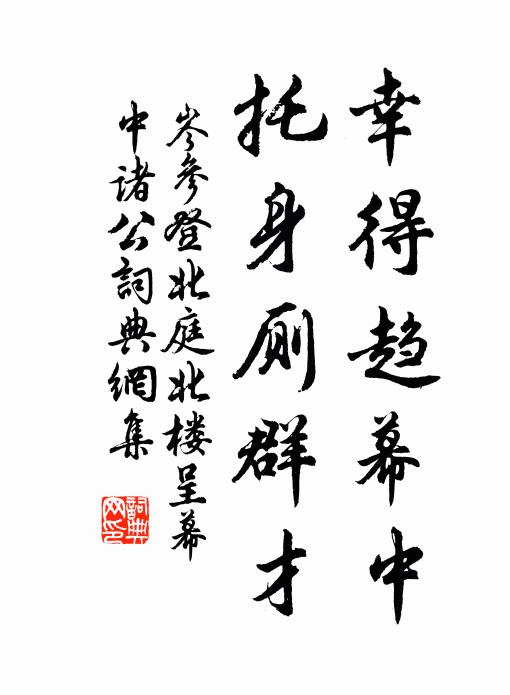 幸得趋幕中
托身厠群才
岑參登北庭北楼呈幕
中諸公詞典網集
詞典
网印